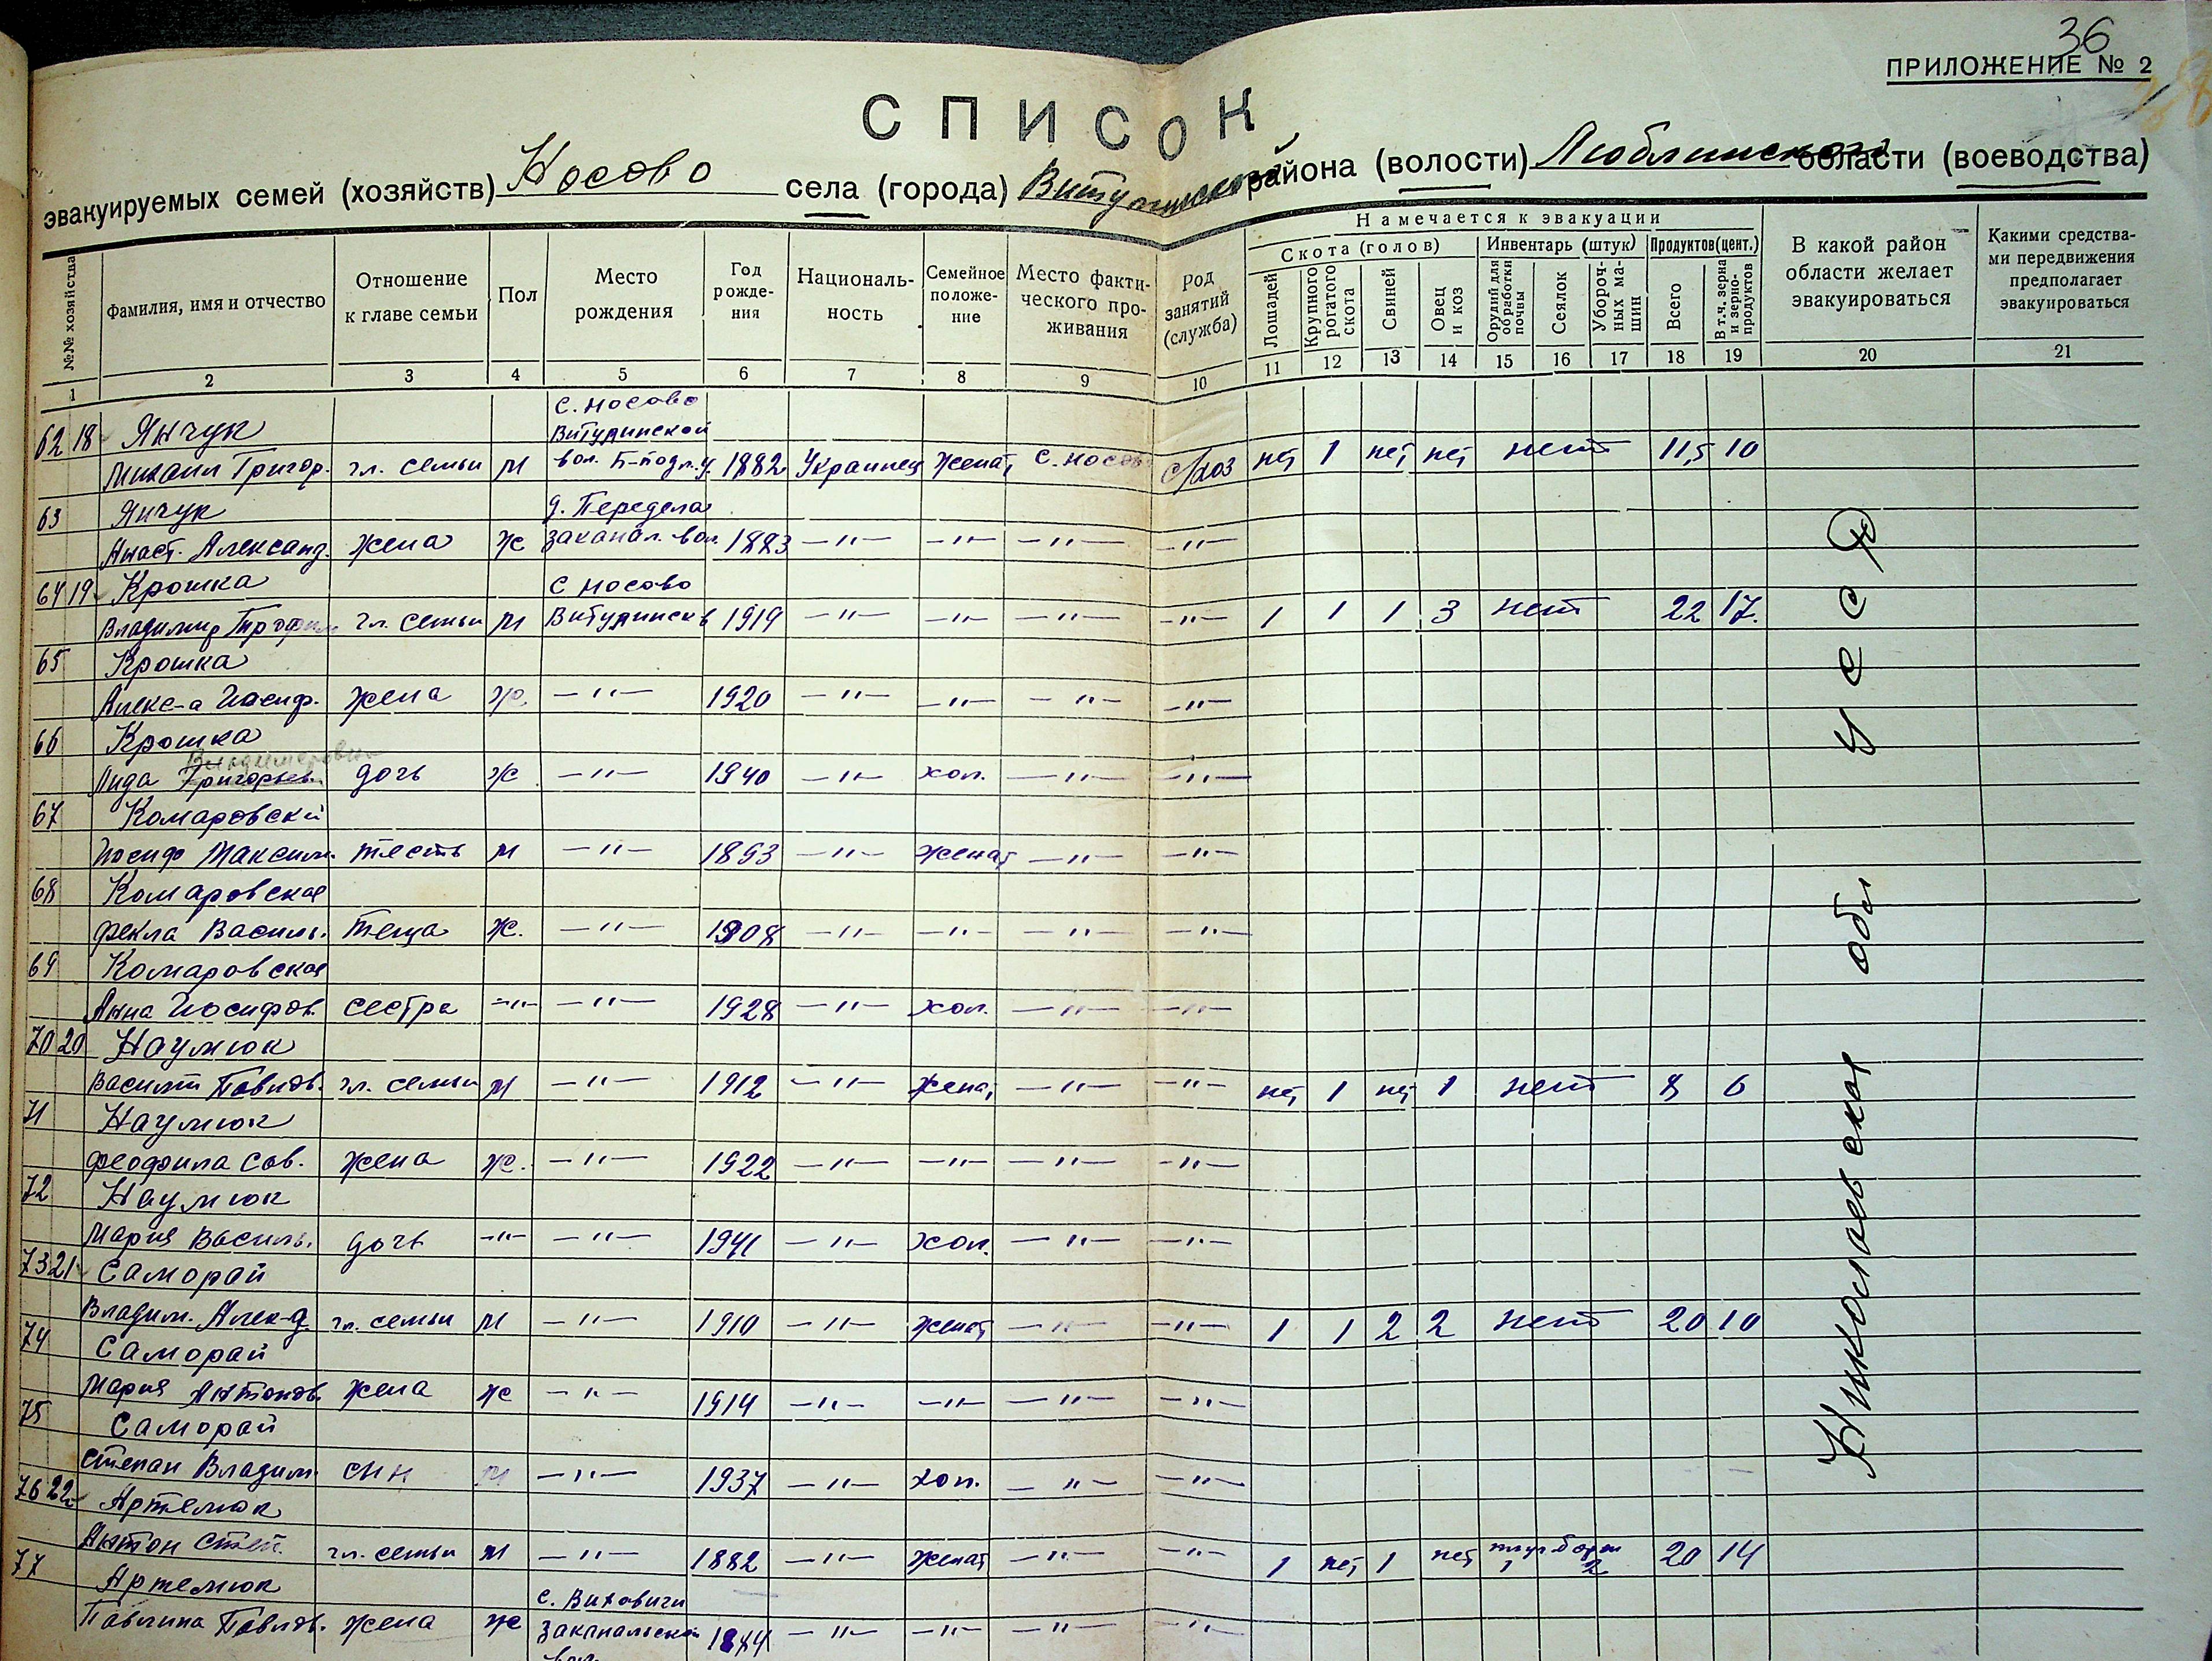 36
ПРИЛОЖЕНИЕ № 2
СПИСОК
эвакуируемых семей (хозяйств) Носово села (города) района (волости) Люблинского области (воеводства)
№№ хозяйства
Фамилия, имя и отчество
Отношение
к главе семьи
Пол
Место
рождения
Год
рожде-
ния
Националь-
ность
Семейное
положе-
ние
Место факти-
ческого про-
живания
Род
занятий
(служба)
Намечается к эвакуации
Скота (голов)
Инвентарь (штук)
Продуктов (цент.)
Лошадей
Крупного
рогатого
скота
Свиней
Овец
и коз
Орудий для
обработки
почвы
Сеялок
Убороч-
ных ма-
шин
Всего
В т.ч. зерна
и зерно-
продуктов
В какой район
области желает
эвакуироваться
Какими средства-
ми передвижения
предполагает
эвакуироваться
1 2 3 4 5 6 7 8 9 10 11 12 13 14 15 16 17 18 19 20 21
с. Носово
62 18 Янчук Витулинской
Михаил Григор. гл. семьи м вол. Б-подл.у. 1882 Украинец женат с. Носов с/хоз нет 1 нет нет нет 11,5 10
63 Янчук д. Передела
Анаст. Александ. жена ж Заканал. вол. 1883 -"- -"- -"- -"-
64 19 Крошка с Носово
Владимир Трофим гл. семьи м Витулинск в 1919 -"- -"- -"- -"- 1 1 1 3 нет 22 17.
65 Крошка
Алекс-а Иосиф. жена ж. -"- 1920 -"- -"- -"- -"-
66 Крошка
Владимировн
Лида Григорьев. дочь ж -"- 1940 -"- хол. -"- -"-
67 Комаровский
Иосиф Максим. тесть м -"- 1893 -"- женат -"- -"-
68 Комаровская
Фекла Василь. теща ж. -"- 1908 -"- -"- -"- -"-
69 Комаровская
Анна Иосифов. сестра -"- -"- 1928 -"- хол. -"- -"-
70 20 Наумюк
Василий Павлов. гл. семьи м -"- 1912 -"- женат -"- -"- нет 1 нет 1 нет 8 6
71 Наумюк
Феофила Сав. жена ж. -"- 1922 -"- -"- -"- -"-
72 Наумюк
Мария Василь. дочь -"- -"- 1941 -"- хол. -"- -"-
73 21 Саморай
Владим. Алек-д. гл. семьи м -"- 1910 -"- женат -"- -"- 1 1 2 2 нет 20 10
74 Саморай
Мария Антонов. жена ж -"- 1914 -"- -"- -"- -"-
75 Саморай
Степан Владим. сын м -"- 1937 -"- хол. -"- -"-
76 22 Артемюк
Антон Степ. гл. семьи м -"- 1882 -"- женат -"- -"- 1 нет 1 нет плуг 1 2 20 14
77 Артемюк с. Виховичи
Павлина Павлов. жена ж Заканальской 1884 -"- -"- -"- -"-
вол.
Николаевская обл УССР